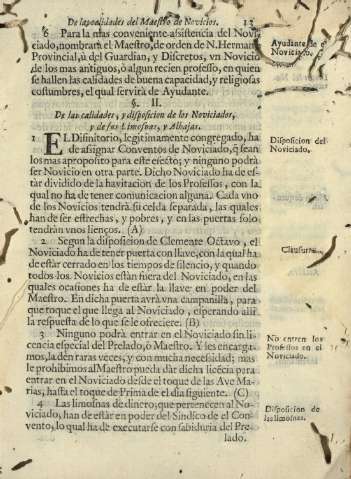 De las calidades del Maestro de Novicios. 13
6 Para la mas conveniente assistencia del Novi-
ciado, nombrarà el Maestro, de orden de N. Herman.
Provincial, ù del Guardian, y Discretos, vn Novicio
de los mas antiguos, ò algun recien professo, en quien
se hallen las calidades de buena capacidad, y religiosas
costumbres, el qual servirà de Ayudante.
Ayudante de
Noviciado.
§. II.
De las calidades, y disposicion de los Noviciados,
y de sus Limosnas, y Alhajas.
1 EL Difinitorio, legitimamente congregado, ha
de assignar Conventos de Noviciado, q̃ sean
los mas aproposito para este efecto; y ninguno podrà
ser Novicio en otra parte. Dicho Noviciado ha de es-
tàr dividido de la havitacion de los Professos, con la
qual no ha de tener comunicacion alguna. Cada vno
de los Novicios tendrà su celda separada, las quales
han de ser estrechas, y pobres, y en las puertas solo
tendràn vnos lienços. (A)
Disposicion del
Noviciado.
2 Segun la disposicion de Clemente Octavo, el
Noviciado ha de tener puerta con llave, con la qual ha
de estàr cerrado en los tiempos de silencio, y quando
todos los Novicios estàn fuera del Noviciado, en las
quales ocasiones ha de estàr la llave en poder del
Maestro. En dicha puerta avrà vna campanilla, para
que toque el que llega al Noviciado, esperando alli
la respuesta de lo que se le ofreciere. (B)
Clausura.
3 Ninguno podrà entrar en el Noviciado sin li-
cencia especial del Prelado, ò Maestro. Y les encarga-
mos, la dèn raras veces, y con mucha necesidad; mas
le prohibimos al Maestro pueda dàr dicha licẽcia para
entrar en el Noviciado desde el toque de las Ave Ma-
rias, hasta el toque de Prima de el dia siguiente. (C)
No entren los
Professos en el
Noviciado.
4 Las limosnas de dinero, que pertenecen al No-
viciado, han de estàr en poder del Sindico de el Con-
vento, lo qual ha de executarse con sabiduria del Pre-
lado.
Disposicion de
las limosnas.